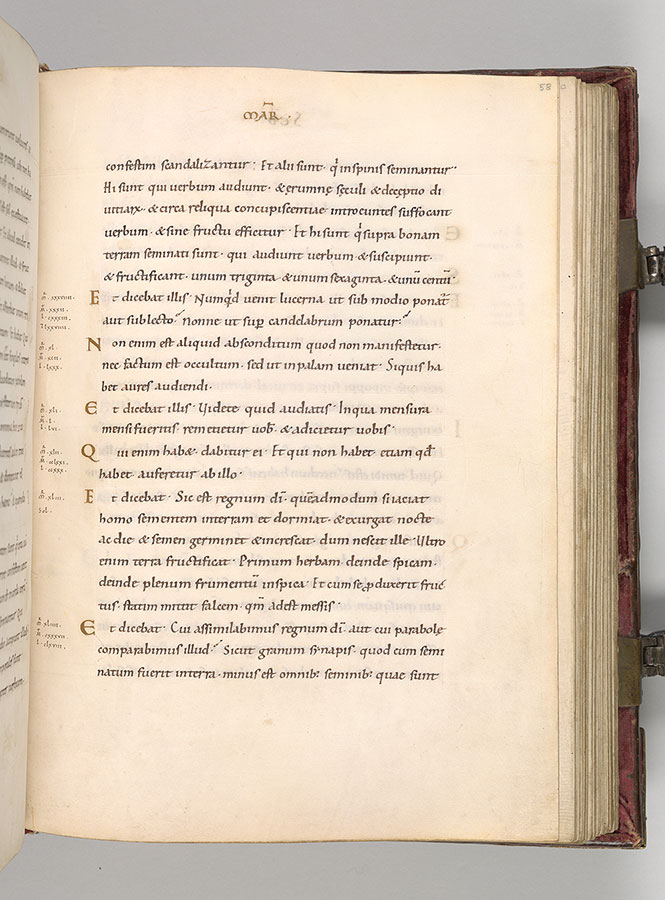 58 a
MAR̄
confestim scandaliZantur · Et alii sunt · q̇ inspinis seminantur ·
Hi sunt qui verbum audiunt · & erumnę sęculi & deceptio di
uitiarx · & circa reliqua concupiscentiae introeuntes suffocant
verbum · & sine fructu efficitur · Et hi sunt q̇ supra bonam
terram seminati sunt · qui audiunt uerbum & suscipiunt ·
& fructificant · unum triginta & unum sexaginta · & unū centū ·
Et dicebat illis · Numqd venit lucerna ut sub modio ponat̄
aut sublecto · Nonne ut suꝑ candelabrum ponatur ·
Non enim est aliquid absconditum quod non manifestetur ·
nec factum est occultum · sed ut inpalam veniat · Siquis ha
bet aures audiendi ·
Et dicebat illis · Videte quid audiatis · Inqua mensura
mensi fueritis remetietur uob̄ · & adicietur uobis ·
Qui enim hab& · dabitur ei · Et qui non habet etiam qd̄
habet auferetur ab illo ·
Et dicebat · Sic est regnum dī · quēadmodum si iaciat
homo sementem interram et dormiat · & exurgat nocte
ac die & semen germin& & increscat · dum nescit ille · Vltro
enim terra fructificat · Primum herbam deinde spicam ·
deinde plenum frumentū inspica · Et cum se ꝓduxerit fruc
tus · statim mittit falcem · qm̄ adest messis ·
Et dicebat · Cui assimilabimus regnum dī · aut cui parabolę
comparabimus illud · Sicut granum synapis · quod cum semi
natum fuerit interra · minus est omnib: seminib: quae sunt